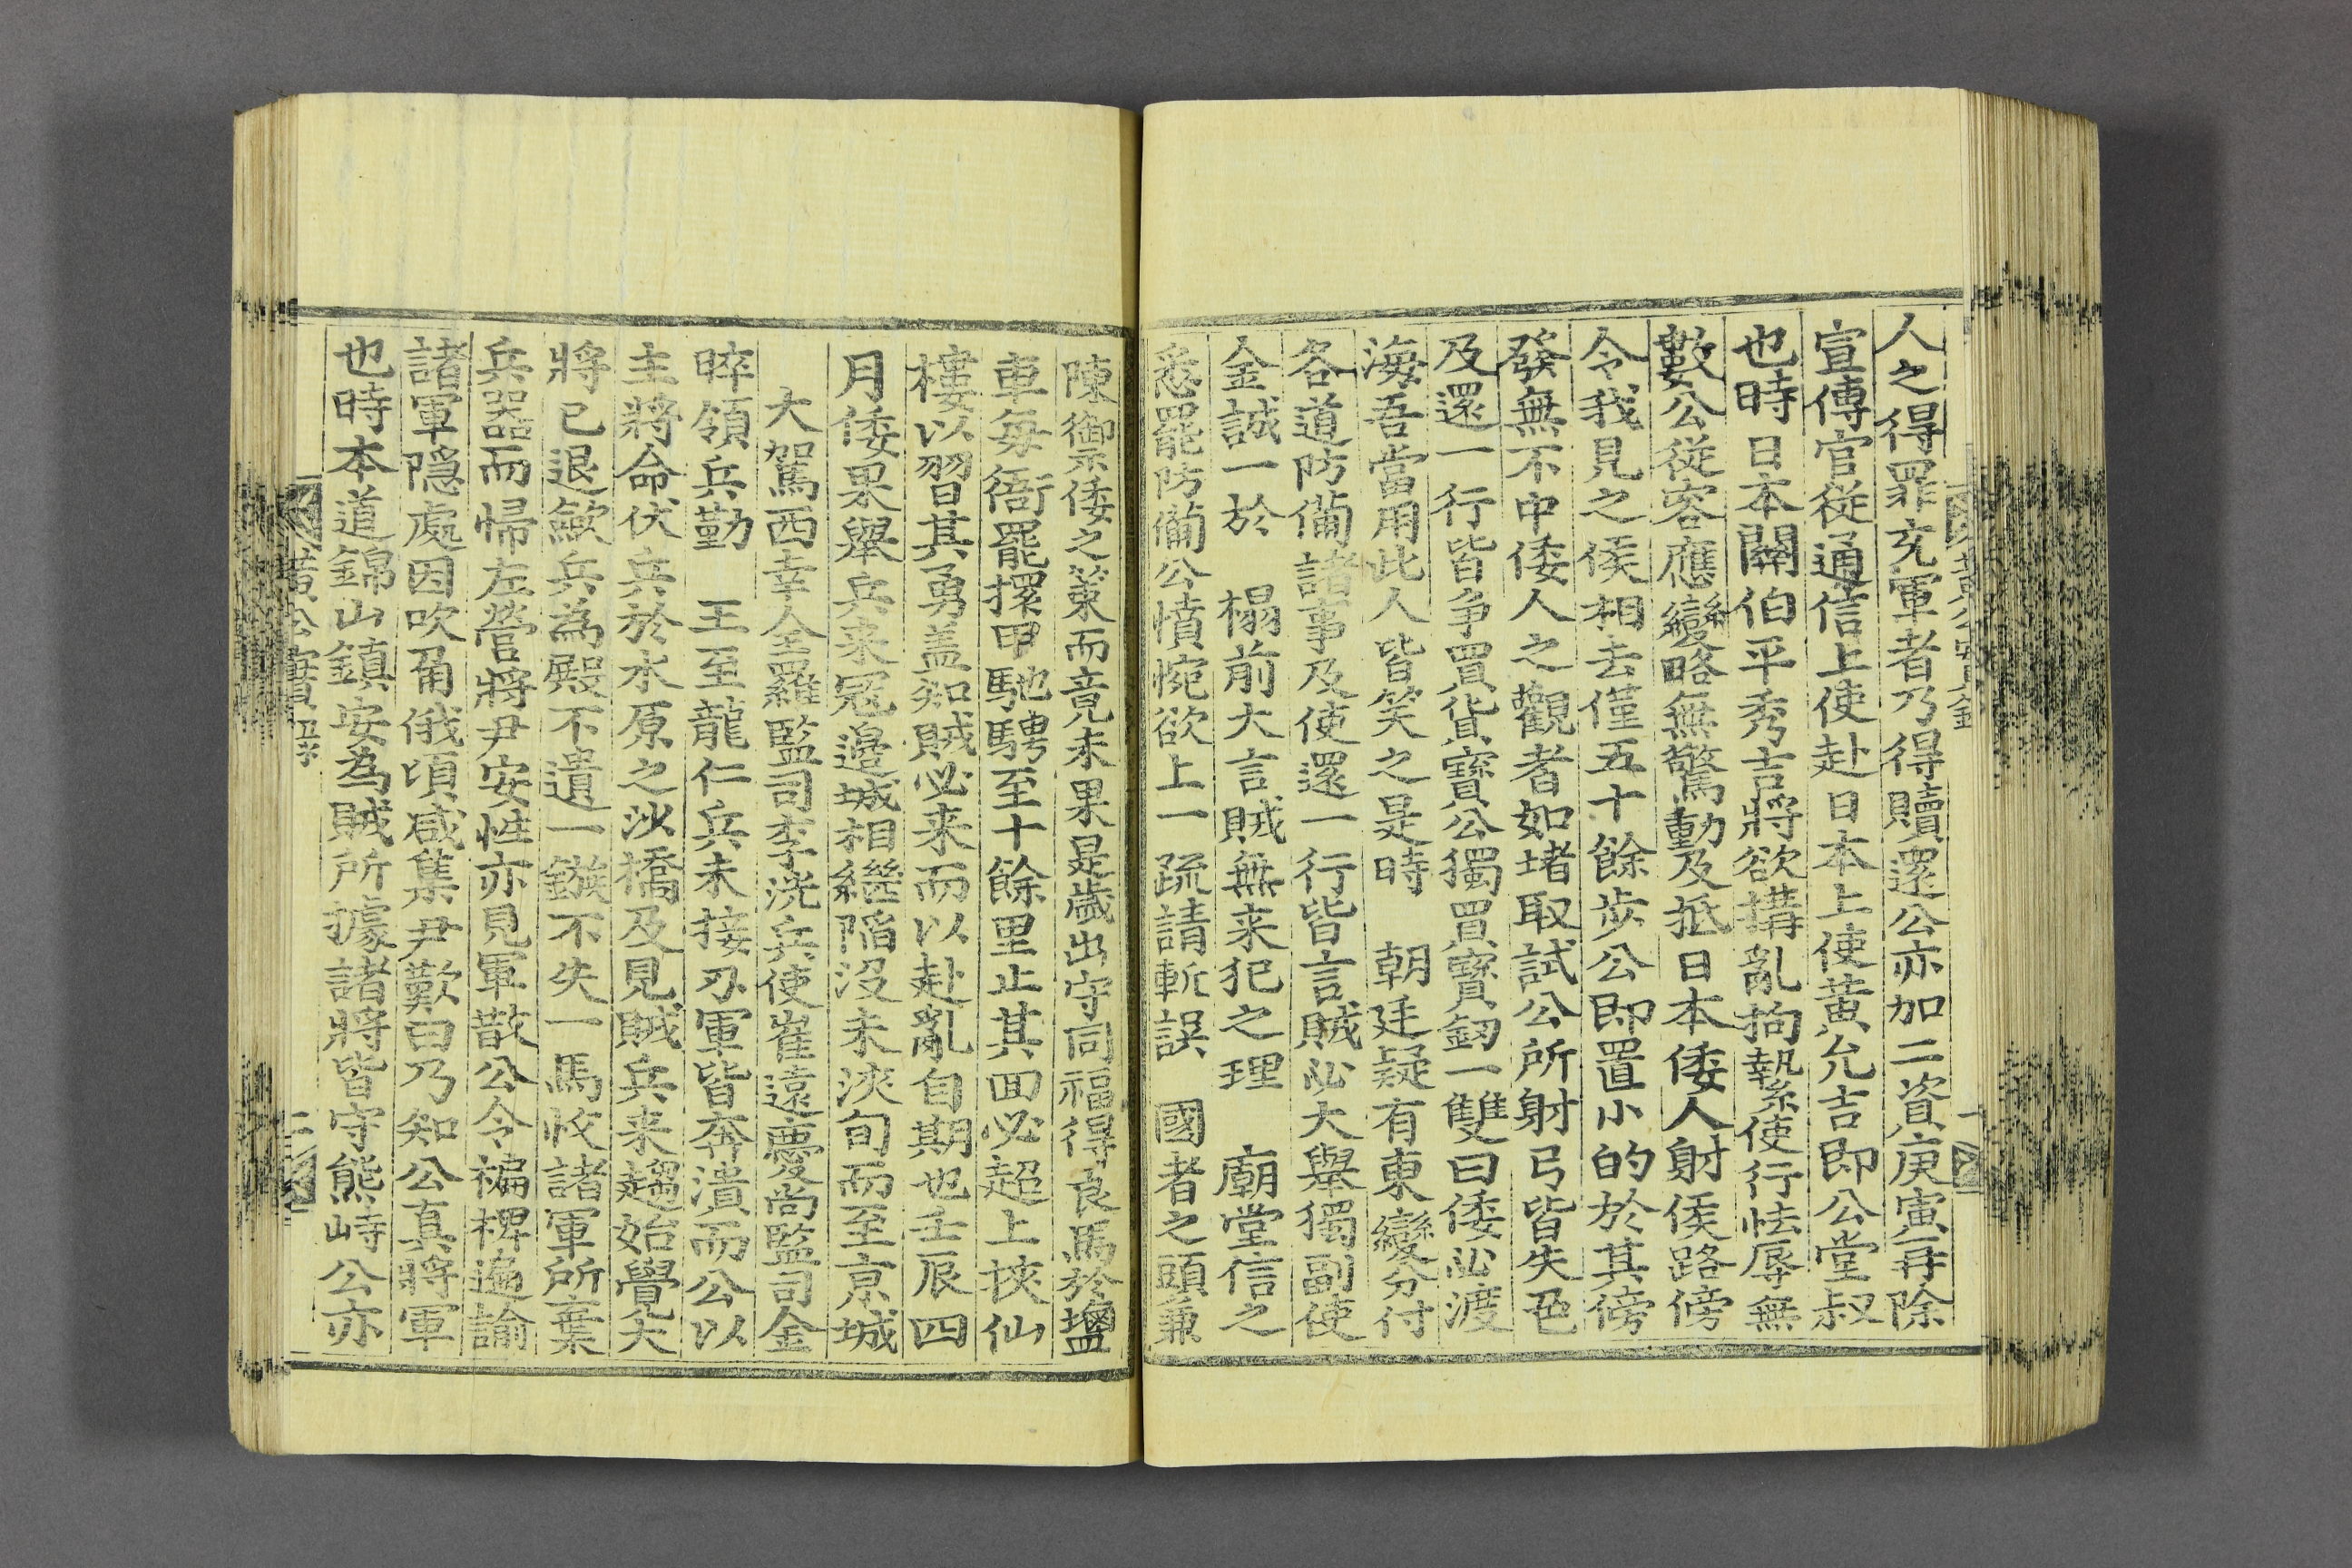 人之得罪充軍者乃得贖還公亦加二資庚寅再除
宣傳官從通信上使赴日本上使黃允吉即公堂叔
也時日本關伯平秀吉將欲搆亂拘縶使行怯辱無
數公從容應變略無驚動及抵日本倭人射侯路傍
令我見之侯相去僅五十餘步公即置小的於其傍
發無不中倭人之觀者如堵取試公所射弓皆失色
及還一行皆争買貨寶公獨買寶釼一雙曰倭必渡
海吾當用此人皆笑之是時 朝廷疑有東變分付
各道防備諸事及使還一行皆言賊必大舉獨副使
金誠一於 榻前大言賊無来犯之理 廟堂信之
悉罷防備公憤惋欲上一疏請斬誤 國者之頭兼
陳禦倭之策而竟未果是歲出守同福得良馬於鹽
車每衙罷擐甲馳騁至十餘里止其回必超上挾仙
樓以習其勇盖知賊必来而以赴亂自期也壬辰四
月倭果舉兵来冦邊城相繼陷沒未浹旬而至京城
大駕西幸全羅監司李洸兵使崔遠慶尚監司金
睟領兵勤 王至龍仁兵未接刃軍皆奔潰而公以
主將命伏兵於水原之沙橋及見賊兵来趨始覺大
將已退歛兵為殿不遺一鏃不失一馬收諸軍所棄
兵器而帰左營將尹安性亦見軍散公令褊裨遍諭
諸軍隐處因吹角俄頃咸集尹歎曰乃知公真將軍
也時本道錦山鎮安為賊所據諸將皆守熊峙公亦